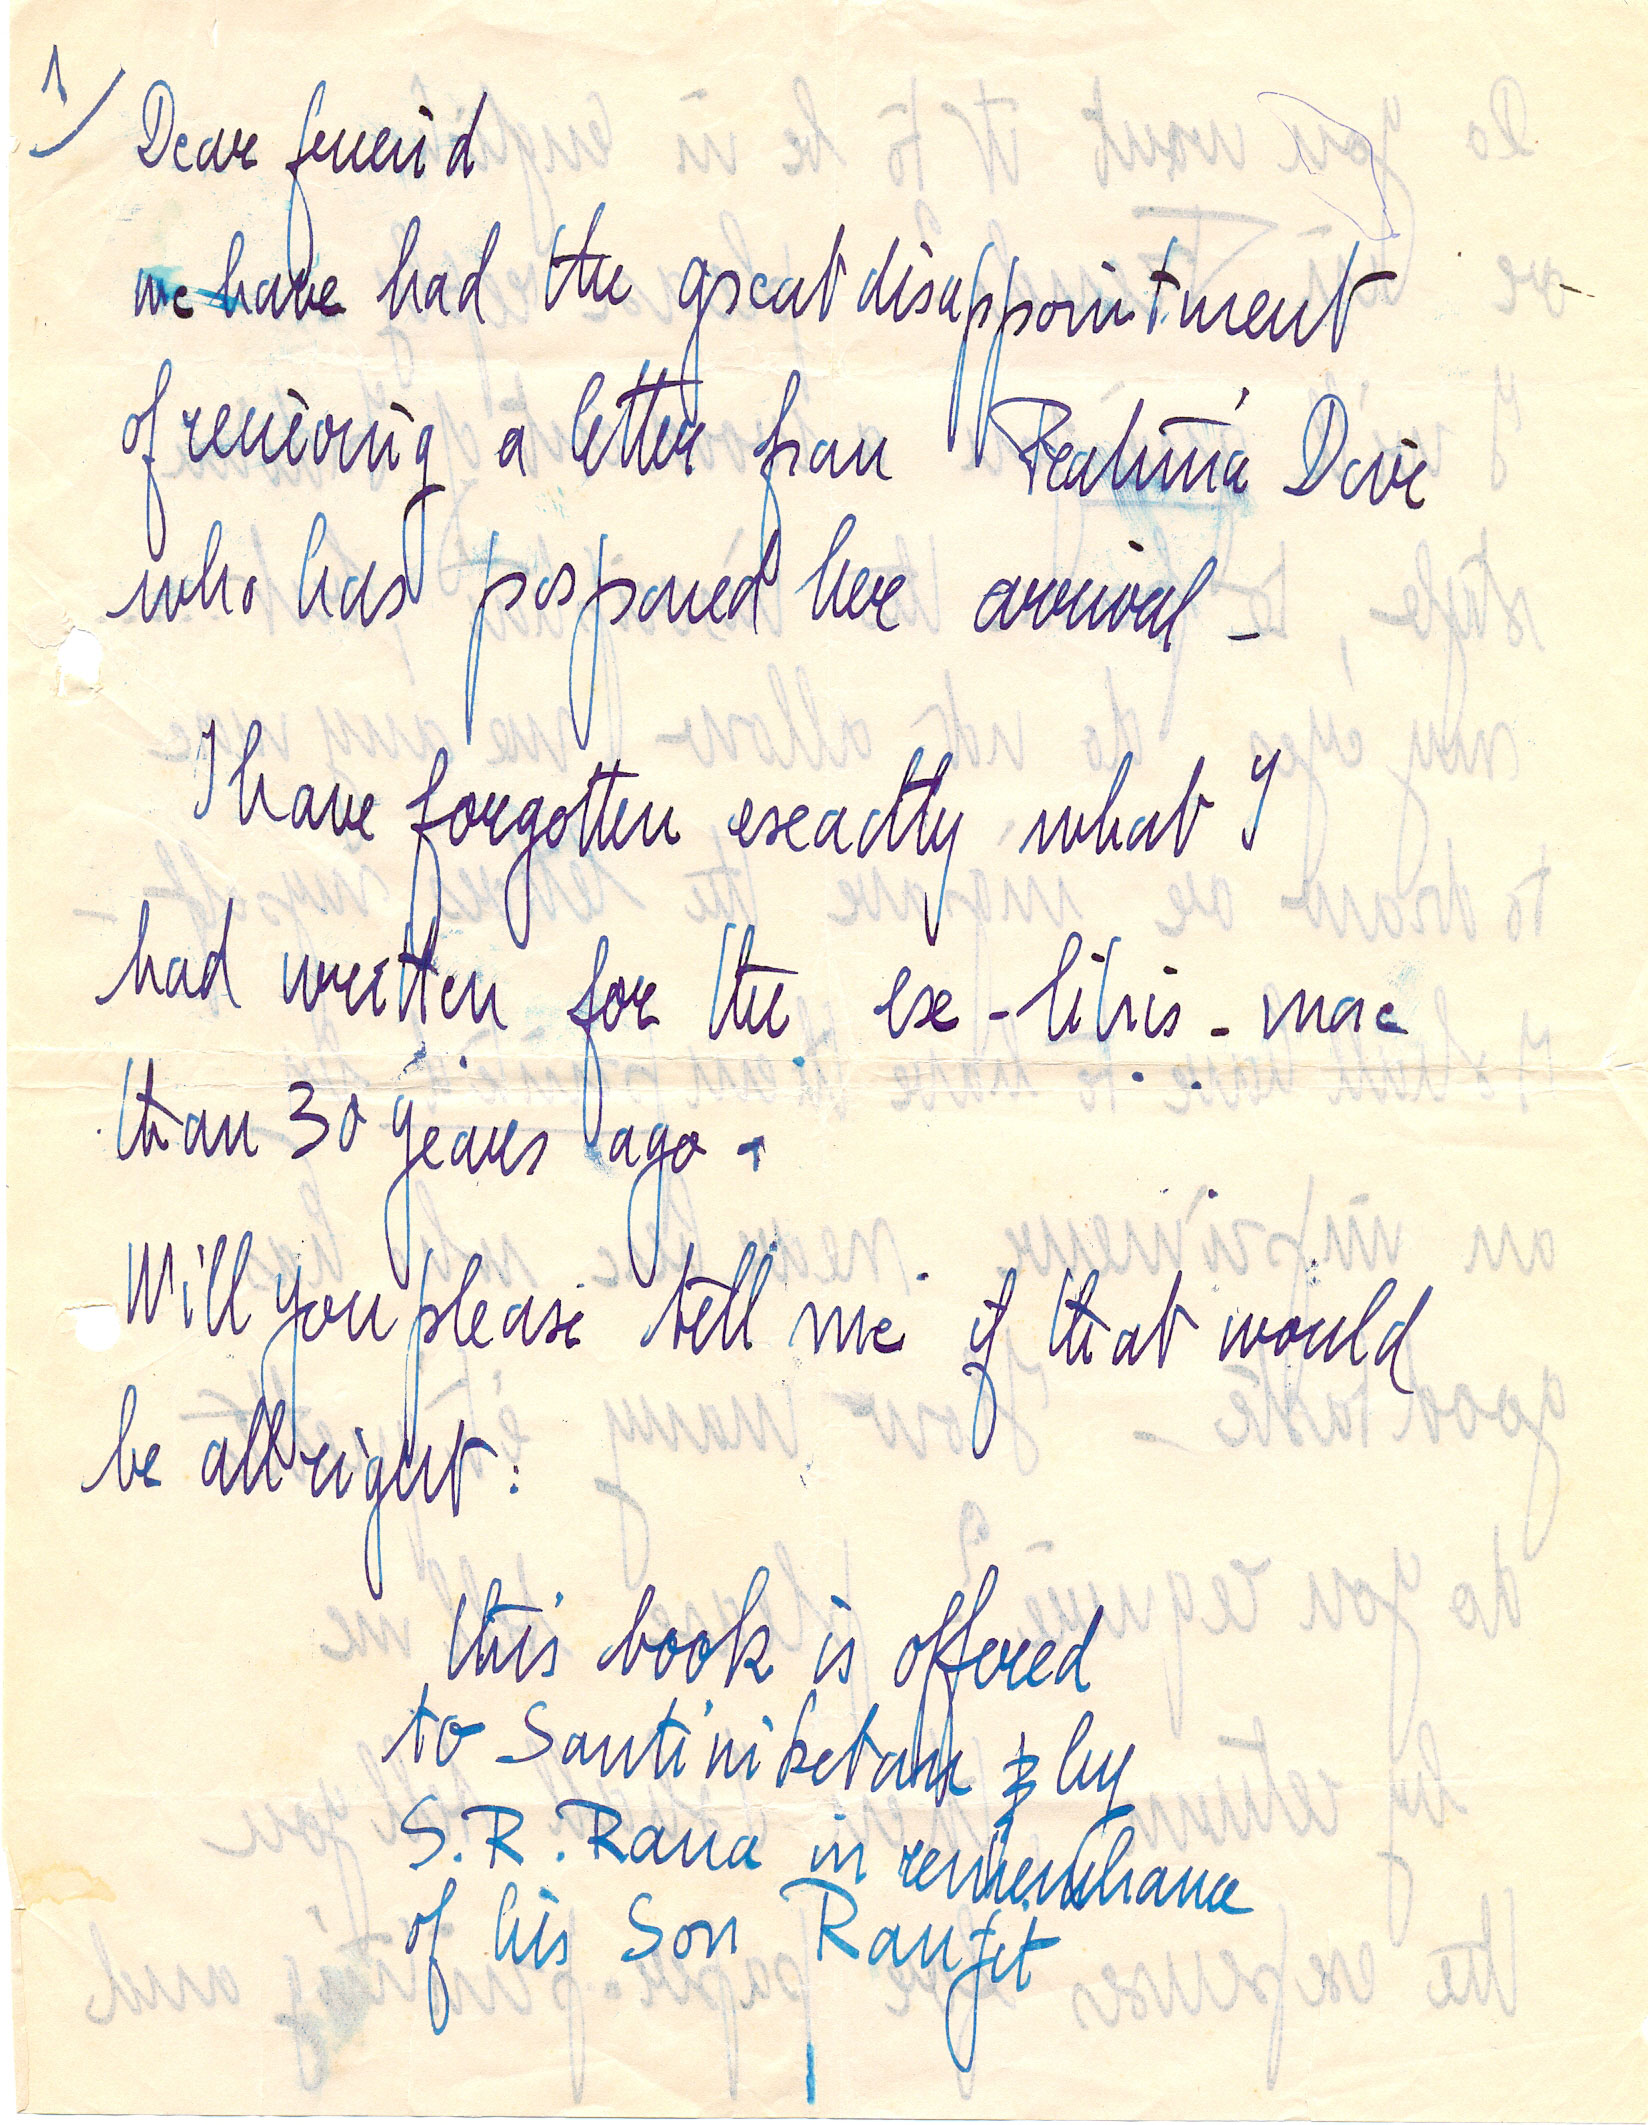 1/
Dear friend
we have had the great disappointment
of receiving a letter from Pratima Devi
who has posponed her arrival -
I have forgotten exeactly what I
had written for the ex-libris - more
than 30 years ago -
Will you please tell me if that would
be all right:
this book is offered
to Santiniketan by
S.R. Rana in remembrance
of his Son Ranjit